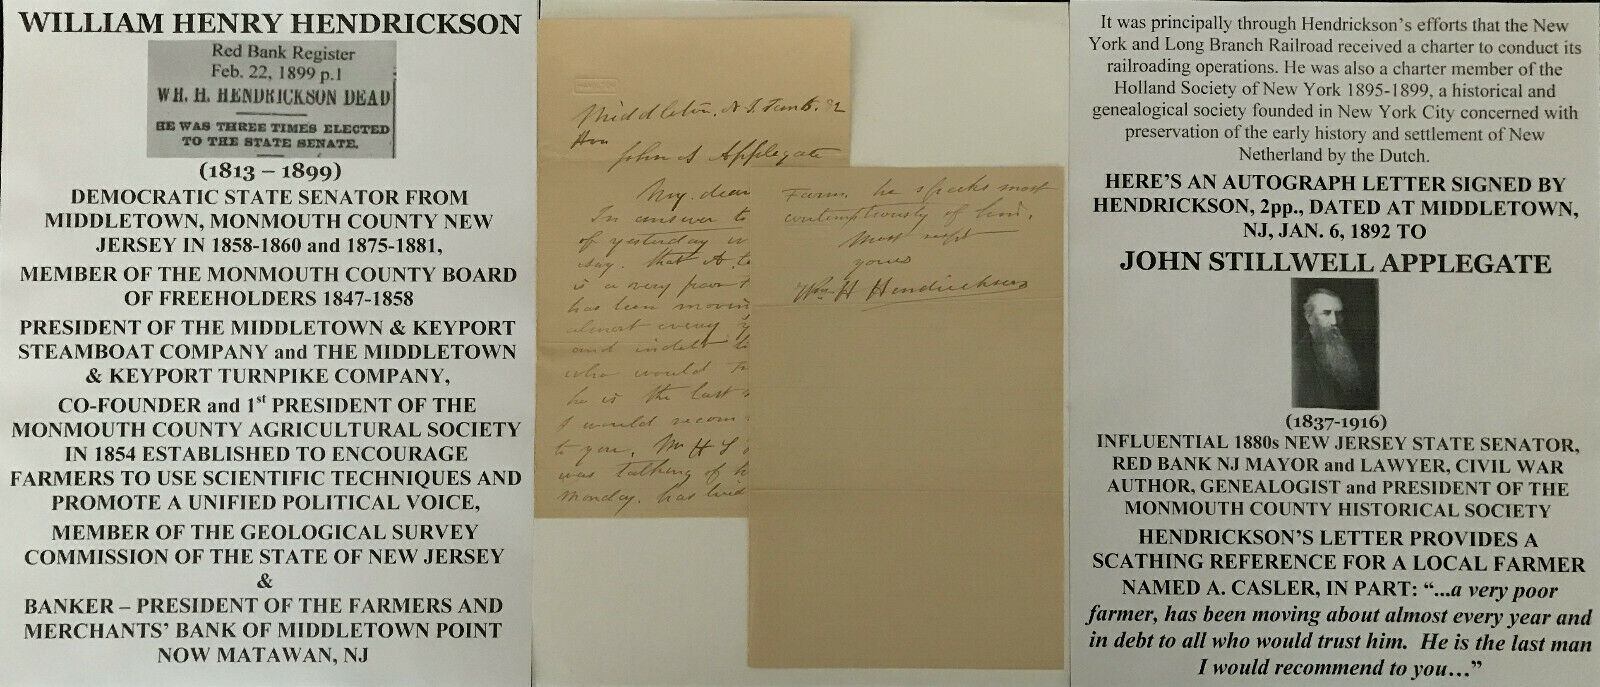 WILLIAM HENRY HENDRICKSON
Red Bank Register
Feb. 22, 1899 p.1
WH. H. HENDRICKSON DEAD
HE WAS THREE TIMES ELECTED
TO THE STATE SENATE.
(1813 – 1899)
DEMOCRATIC STATE SENATOR FROM
MIDDLETOWN, MONMOUTH COUNTY NEW
JERSEY IN 1858-1860 and 1875-1881,
MEMBER OF THE MONMOUTH COUNTY BOARD
OF FREEHOLDERS 1847-1858
PRESIDENT OF THE MIDDLETOWN & KEYPORT
STEAMBOAT COMPANY and THE MIDDLETOWN
& KEYPORT TURNPIKE COMPANY,
CO-FOUNDER and 1st PRESIDENT OF THE
MONMOUTH COUNTY AGRICULTURAL SOCIETY
IN 1854 ESTABLISHED TO ENCOURAGE
FARMERS TO USE SCIENTIFIC TECHNIQUES AND
PROMOTE A UNIFIED POLITICAL VOICE,
MEMBER OF THE GEOLOGICAL SURVEY
COMMISSION OF THE STATE OF NEW JERSEY
&
BANKER – PRESIDENT OF THE FARMERS AND
MERCHANTS' BANK OF MIDDLETOWN POINT
NOW MATAWAN, NJ
Hon
John S Applegate
My dear
In answer to
of yesterday
say. that A.
is a very poor
has been movin
almost every
and indebt
who would
he is the last
I would recom
to you. Mr H S
was talking of
Monday. has lived
Farm, he speaks most
contemptuously of him.
Most respt
yours
Wm H Hendrickson
It was principally through Hendrickson's efforts that the New
York and Long Branch Railroad received a charter to conduct its
railroading operations. He was also a charter member of the
Holland Society of New York 1895-1899, a historical and
genealogical society founded in New York City concerned with
preservation of the early history and settlement of New
Netherland by the Dutch.
HERE'S AN AUTOGRAPH LETTER SIGNED BY
HENDRICKSON, 2pp., DATED AT MIDDLETOWN,
NJ, JAN. 6, 1892 TO
JOHN STILLWELL APPLEGATE
(1837-1916)
INFLUENTIAL 1880s NEW JERSEY STATE SENATOR,
RED BANK NJ MAYOR and LAWYER, CIVIL WAR
AUTHOR, GENEALOGIST and PRESIDENT OF THE
MONMOUTH COUNTY HISTORICAL SOCIETY
HENDRICKSON'S LETTER PROVIDES A
SCATHING REFERENCE FOR A LOCAL FARMER
NAMED A. CASLER, IN PART: "...a very poor
farmer, has been moving about almost every year and
in debt to all who would trust him. He is the last man
I would recommend to you…"